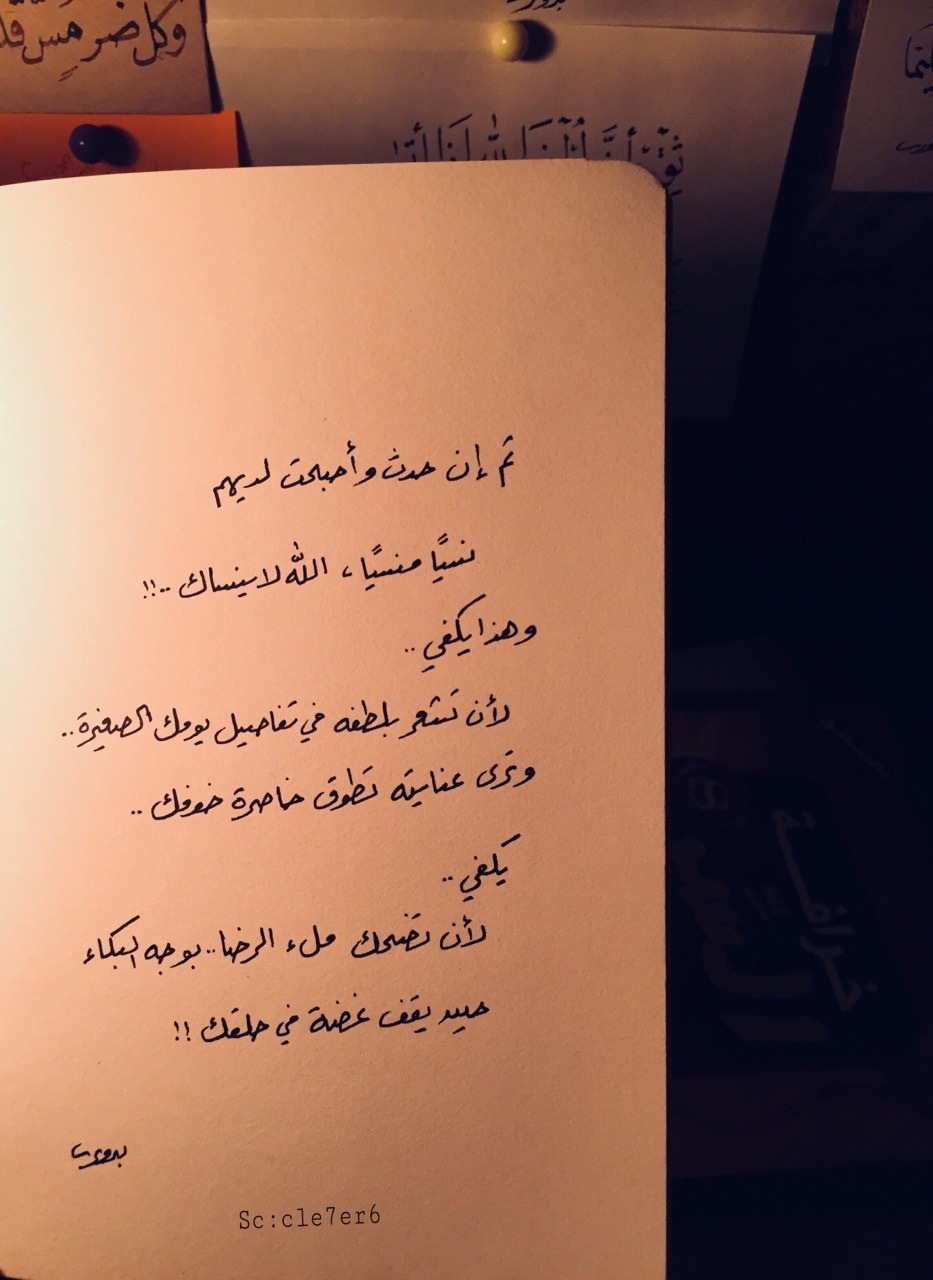 وكل ضر مس
ثم إن حدث وأصبحت لديهم
نسيًا منسيًا، الله لا ينساك ..!!
وهذا يكفي ..
لأن تشعر بلطفه في تفاصيل يومك الصغيرة ..
وترى عنايته تطوق خاصرة خوفك ..
يكفي ..
لأن تضحك ملء الرضا.. بوجه البكاء
حين يقف غصة في حلقك !!
Sc:cle7er6
خرافة